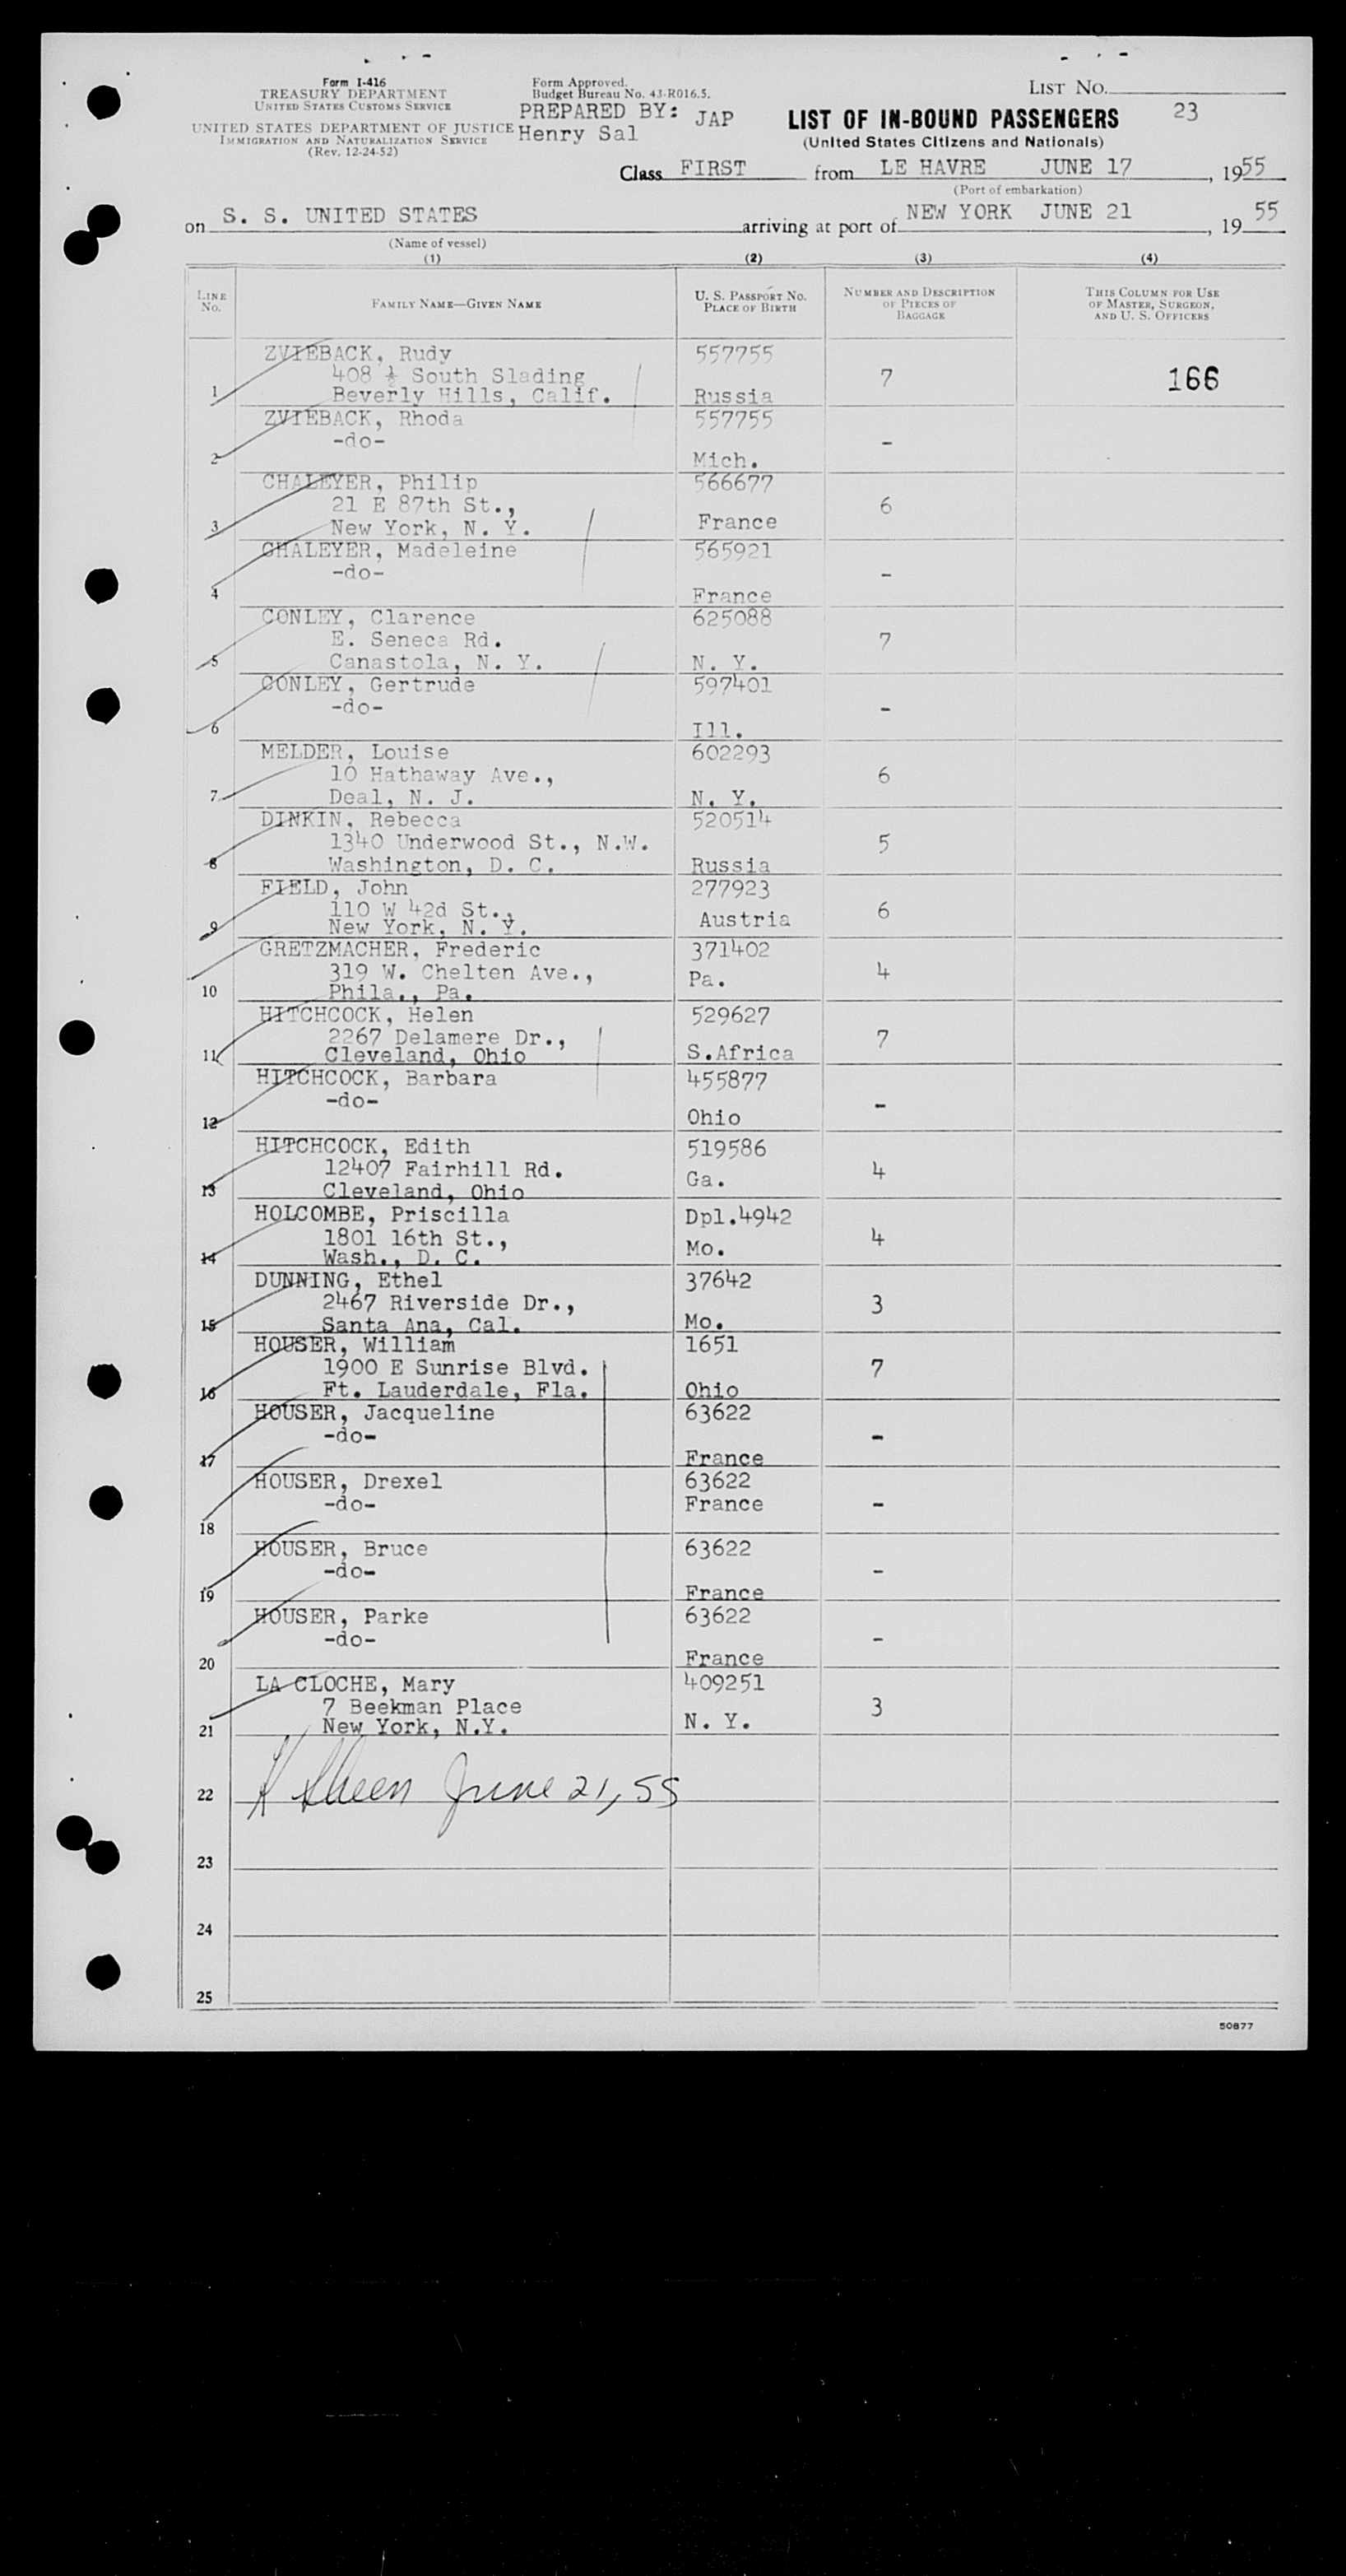 Form I-416
TREASURY DEPARTMENT
UNITED STATES CUSTOMS SERVICE
UNITED STATES DEPARTMENT OF JUSTICE
IMMIGRATION AND NATURALIZATION SERVICE
(Rev. 12-24-52)
Form Approved.
Budget Bureau No. 43-R016.5.
PREPARED BY: JAP
Henry Sal
LIST NO.
23
LIST OF IN-BOUND PASSENGERS
(United States Citizens and Nationals)
Class FIRST from LE HAVRE JUNE 17, 1955
(Port of embarkation)
on S. S. UNITED STATES arriving at port of NEW YORK JUNE 21, 19 55
(Name of vessel)
(1) (2) (3) (4)
LINE NO.
FAMILY NAME—GIVEN NAME
U. S. PASSPORT NO.
PLACE OF BIRTH
NUMBER AND DESCRIPTION
OF PIECES OF
BAGGAGE
THIS COLUMN FOR USE
OF MASTER, SURGEON,
AND U. S. OFFICERS
ZVIEBACK, Rudy 557755
408 ½ South Slading 7 166
1 Beverly Hills, Calif. Russia
ZVIEBACK, Rhoda 557755
-do- -
2 Mich.
CHALEYER, Philip 566677
21 E 87th St., 6
3 New York, N. Y. France
CHALEYER, Madeleine 565921
-do- -
4 France
CONLEY, Clarence 625088
E. Seneca Rd. 7
5 Canastola, N. Y. N. Y.
CONLEY, Gertrude 597401
-do- -
6 Ill.
MELDER, Louise 602293
10 Hathaway Ave., 6
7 Deal, N. J. N. Y.
DINKIN, Rebecca 520514
1340 Underwood St., N.W. 5
8 Washington, D. C. Russia
FIELD, John 277923
110 W 42d St., Austria 6
9 New York, N. Y.
GRETZMACHER, Frederic 371402
319 W. Chelten Ave., Pa. 4
10 Phila., Pa.
HITCHCOCK, Helen 529627
2267 Delamere Dr., 7
11 Cleveland, Ohio S.Africa
HITCHCOCK, Barbara 455877
-do- -
12 Ohio
HITCHCOCK, Edith 519586
12407 Fairhill Rd. Ga. 4
13 Cleveland, Ohio
HOLCOMBE, Priscilla Dpl.4942
1801 16th St., Mo. 4
14 Wash., D. C.
DUNNING, Ethel 37642
2467 Riverside Dr., 3
15 Santa Ana, Cal. Mo.
HOUSER, William 1651
1900 E Sunrise Blvd. 7
16 Ft. Lauderdale, Fla. Ohio
HOUSER, Jacqueline 63622
-do- -
17 France
HOUSER, Drexel 63622
-do- France -
18
HOUSER, Bruce 63622
-do- -
19 France
HOUSER, Parke 63622
-do- -
20 France
LA CLOCHE, Mary 409251
7 Beekman Place 3
21 New York, N.Y. N. Y.
22 June 21, 55
23
24
25
50877